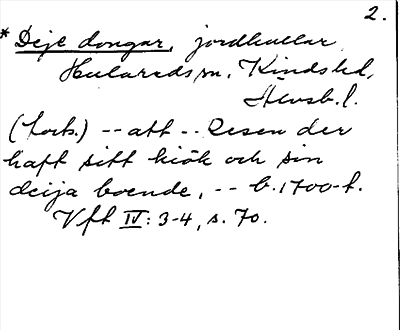 2.
* Deje dongar, jordkullar
Hulareds sn, Kinds hd,
Älvsb. l.
(torb.) -- att -- Resen der
haft sitt kiök och sin
deija boende, -- b. 1700-t.
Vft IV: 3-4, s. 70.